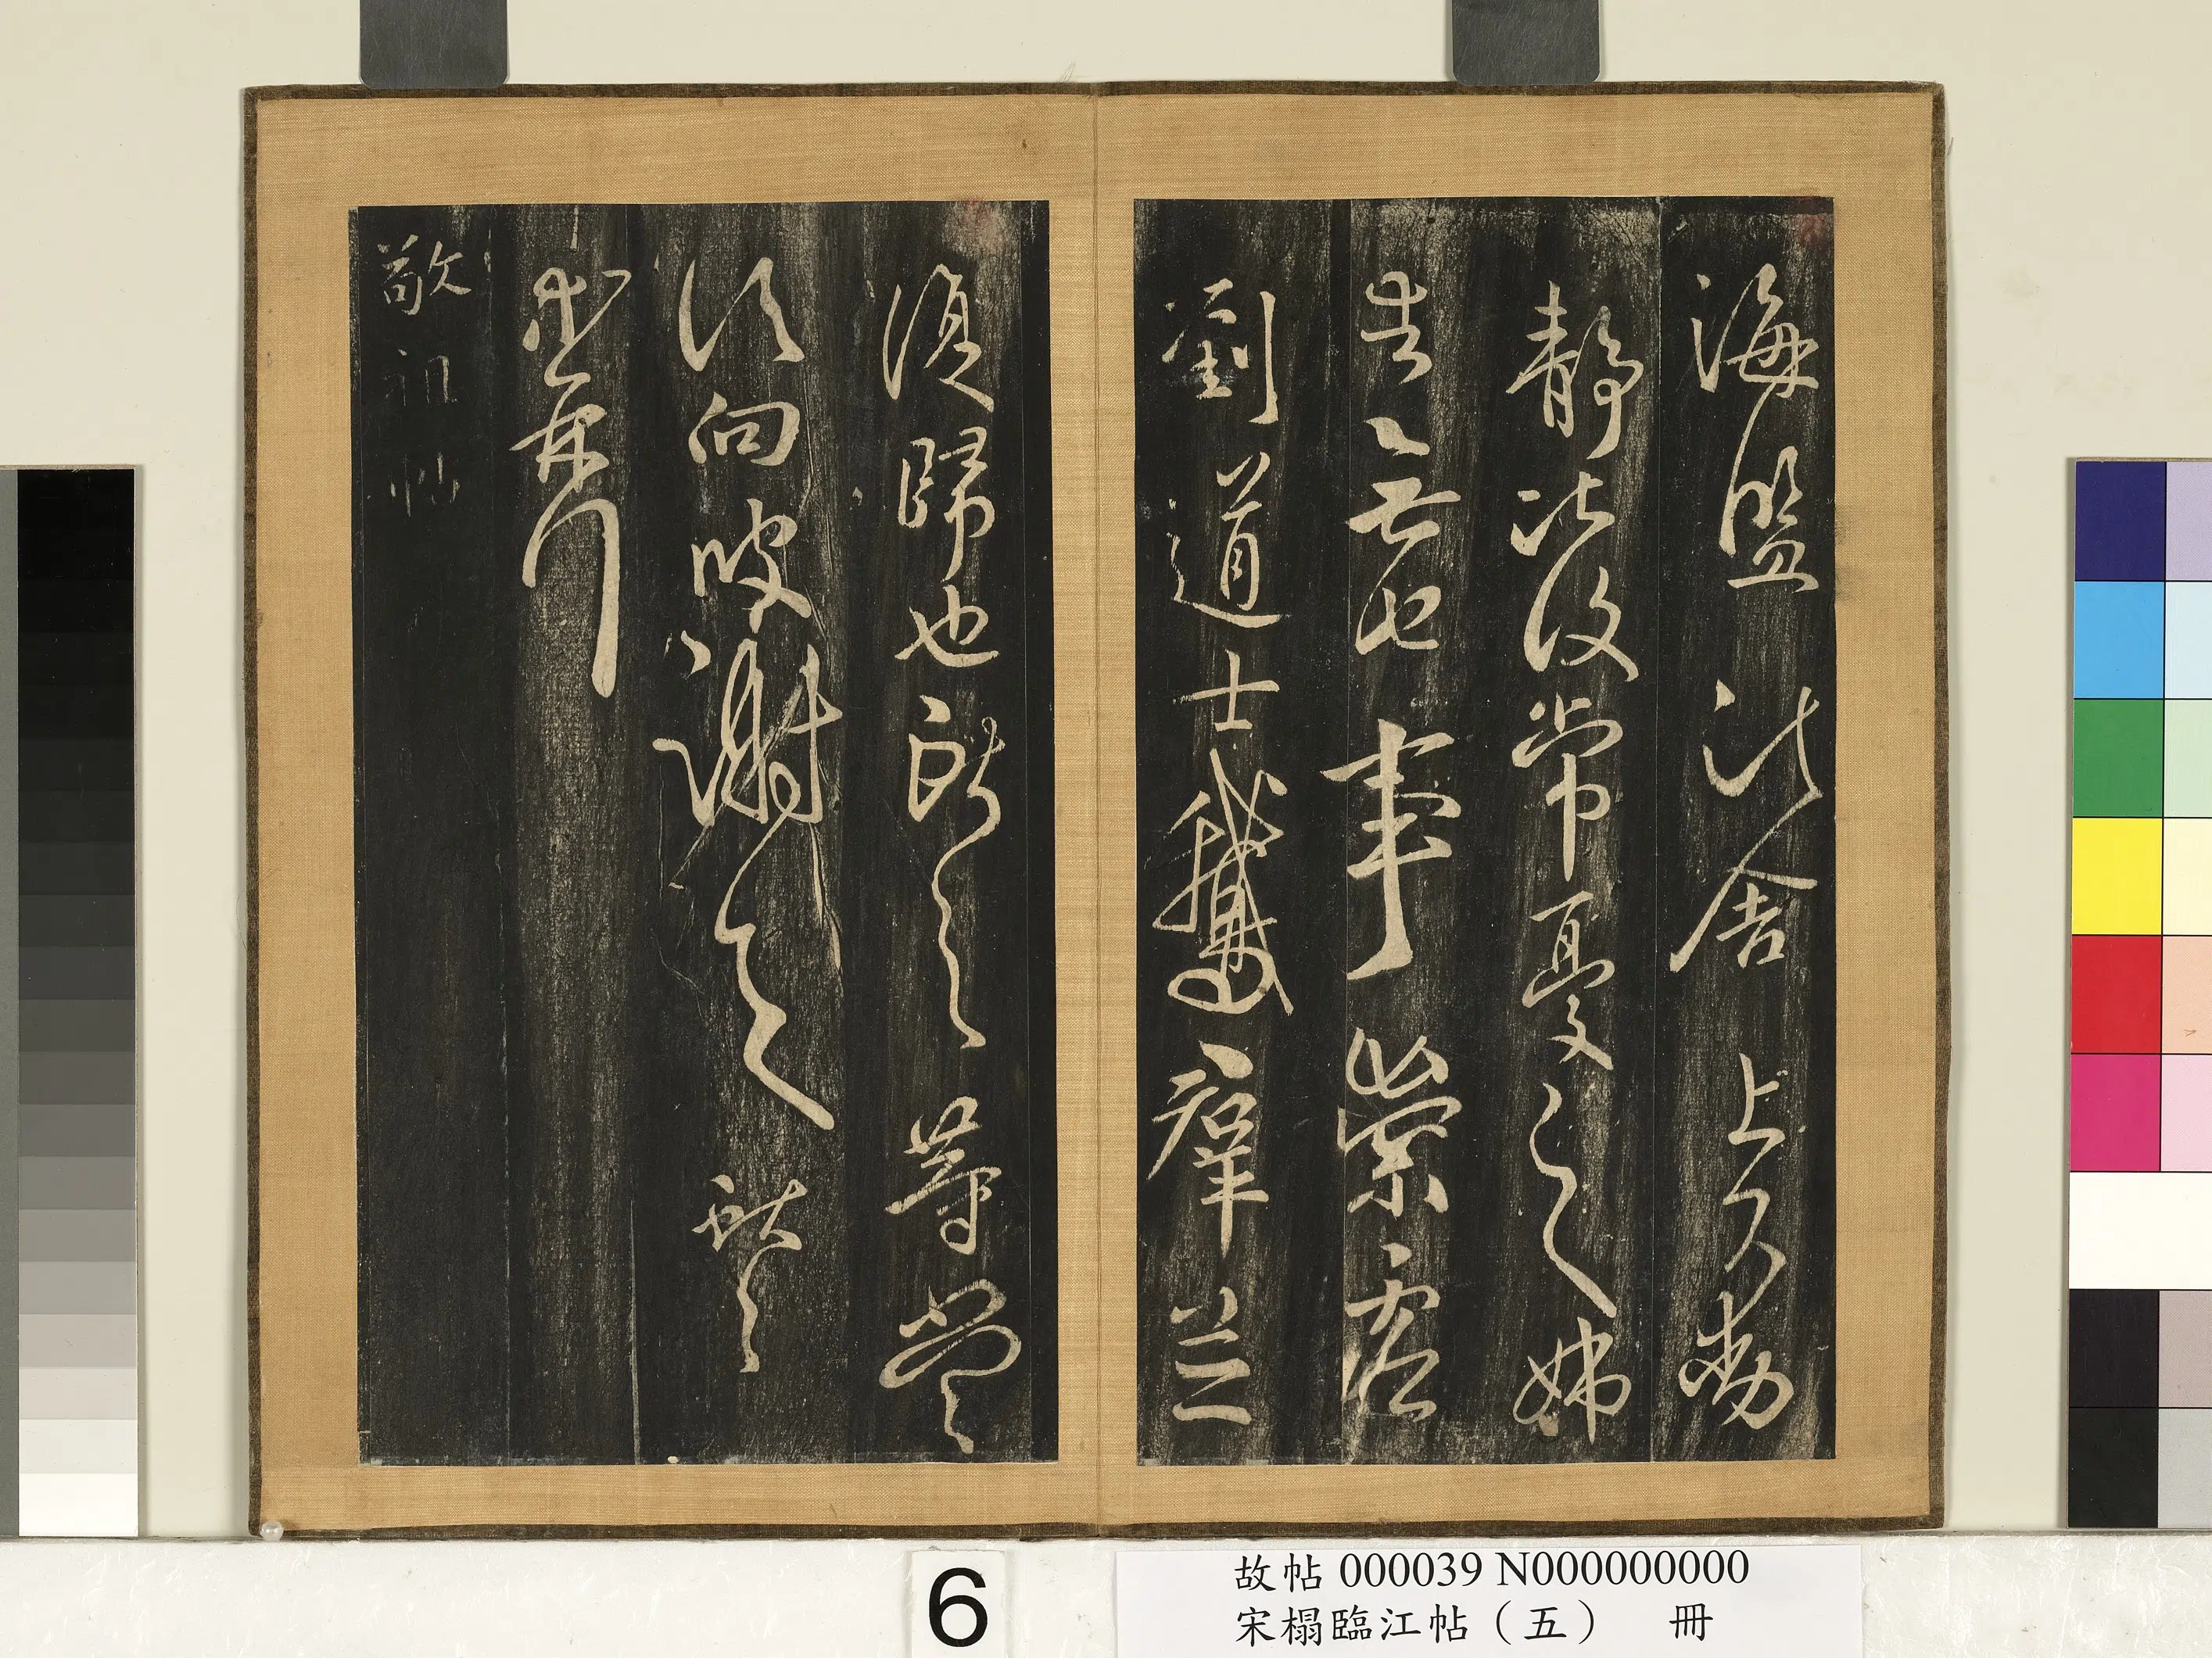 海鹽諸舍上下動
靜比復常憂之姊
告無他事崇虛
劉道士鵝羣並
復歸也獻之等當
須向彼謝之獻之
等再拜
敬祖帖
6
故帖 000039 N000000000
宋榻臨江帖（五） 冊